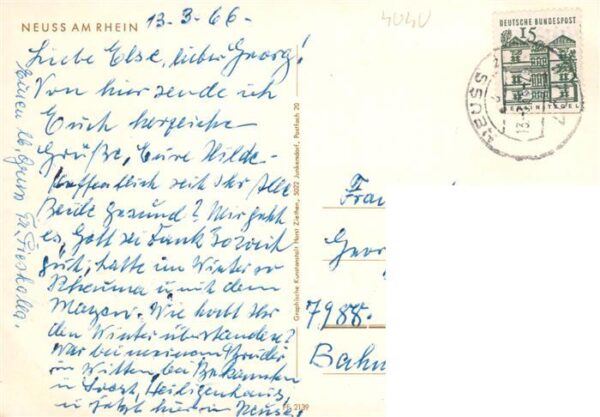 NEUSS AM RHEIN
13-3-66-
4040
Liebe Else, lieber Georg!
Von hier sende ich
Euch herzliche
Grüße, Eure Hilde
hoffentlich seit Ihr alle
Beide gesund? Mir geht
es, Gott sei Dank soweit
gut, hatte im Winter so
Rheuma u mit dem
Magen. Wie habt Ihr
den Winter überstanden?
War bei meinem Bruder
in Witten, bei Bekannten
in Soest, Heiligenhaus,
u jetzt hier in Neuss,
Einen lb. Gruss
Graphische Kunstanstalt Horst Ziethen, 5022 Junkersdorf, Postfach 20
2139
DEUTSCHE BUNDESPOST
15
TEGEL
NEUSS
Frau
Geor
7988-
Bahn